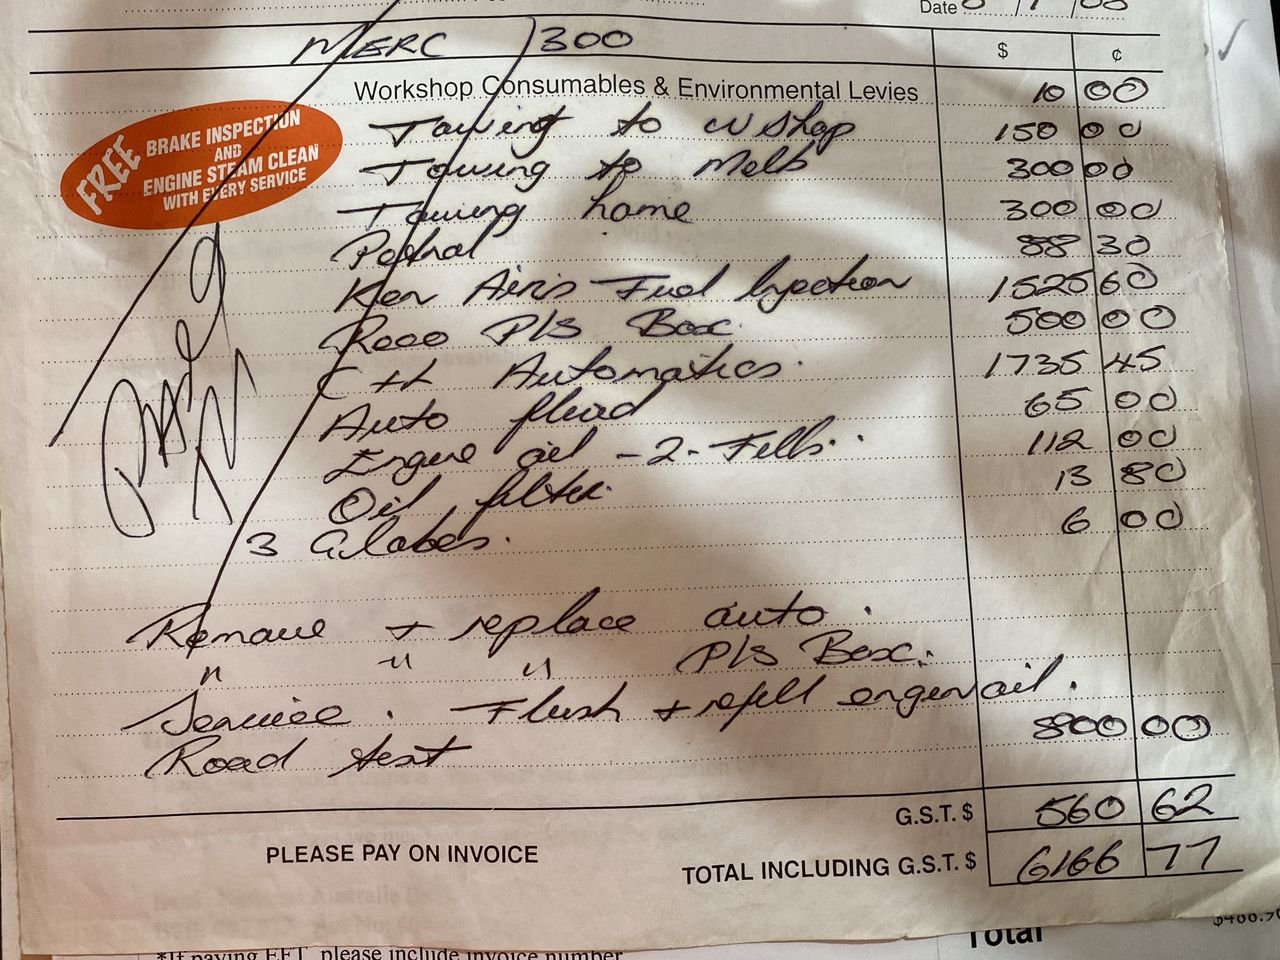 Date
MERC 300
$ ¢
Workshop Consumables & Environmental Levies 10 00
FREE BRAKE INSPECTION
AND
ENGINE STEAM CLEAN
WITH EVERY SERVICE
Towing to W Shop 150 00
Towing to Melb 300 00
Towing home 300 00
Petrol 88 30
Ken Airis Fuel Injection 1525 60
Reco P/S Box 500 00
C + L Automatics. 1735 45
Auto fluid 65 00
Engine oil - 2 - Fills. 112 00
Oil filter. 13 80
3 Globes. 6 00
Remove + replace auto.
" " " P/S Box.
Service. Flush + refill engine oil.
800 00
Road test
G.S.T. $ 560 62
PLEASE PAY ON INVOICE
TOTAL INCLUDING G.S.T. $ 6166 77
Total
*If paying EFT, please include invoice number